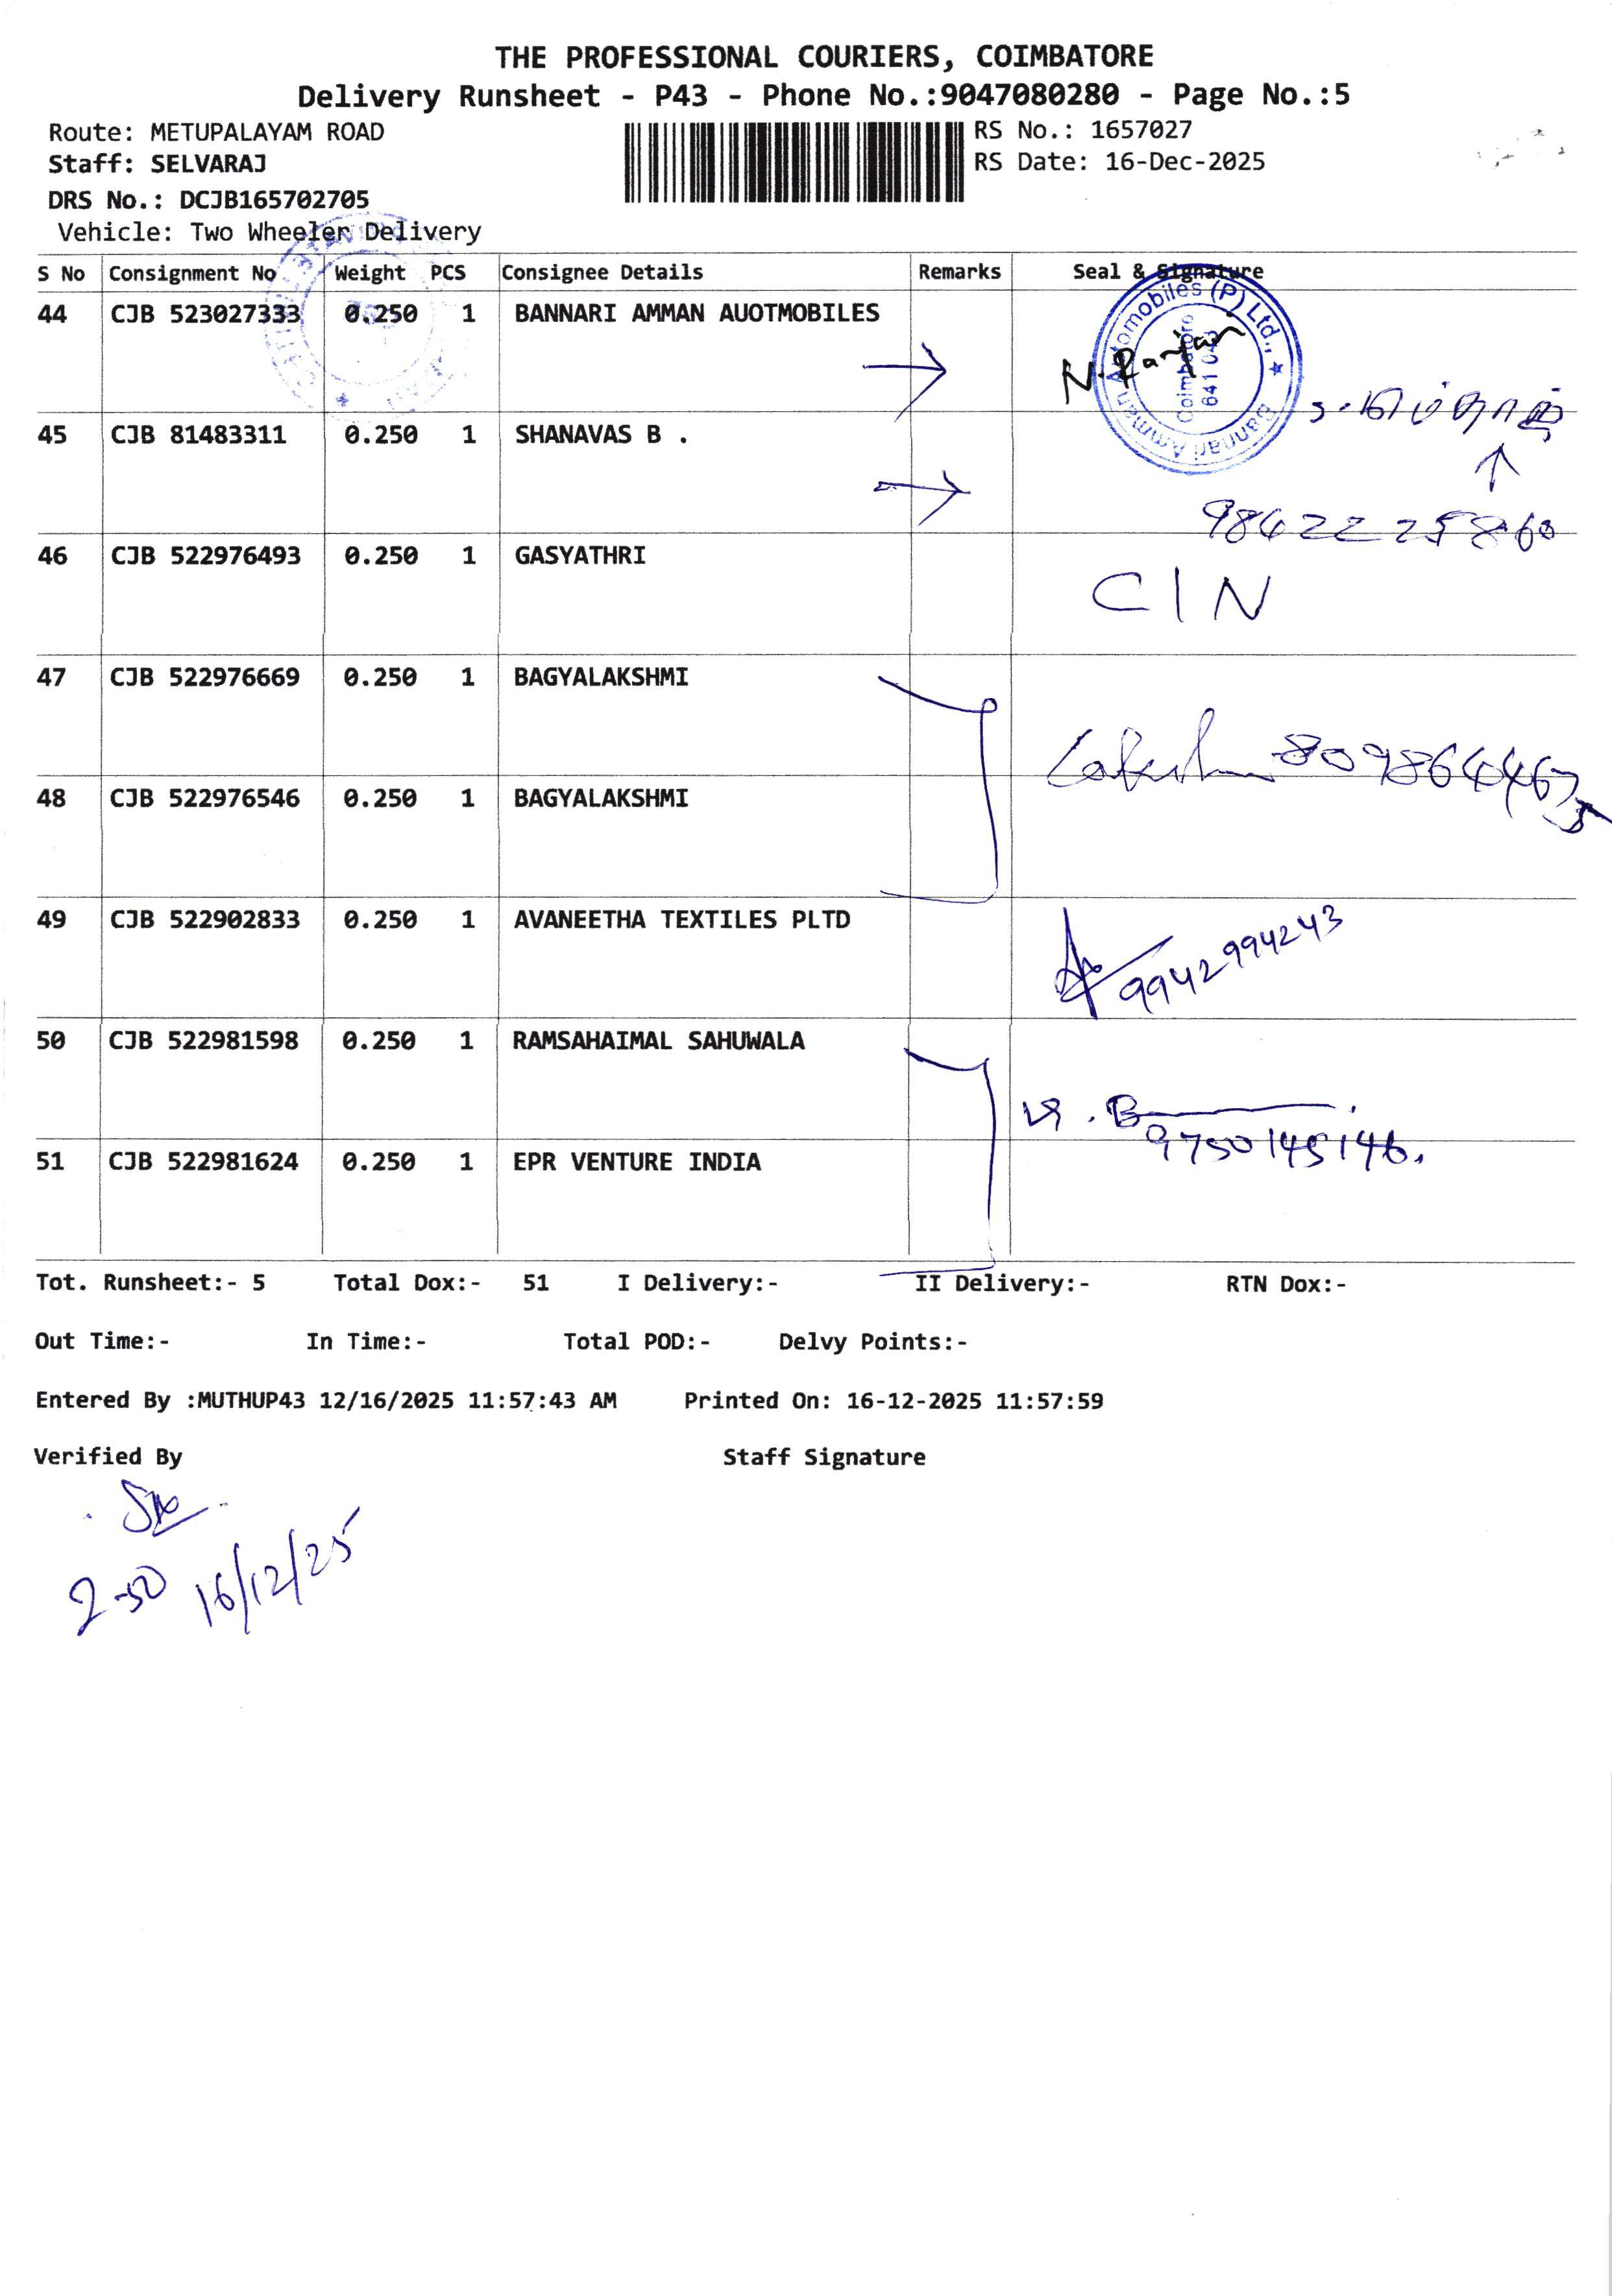 THE PROFESSIONAL COURIERS, COIMBATORE
Delivery Runsheet - P43 - Phone No.:9047080280 - Page No.:5
Route: METUPALAYAM ROAD
RS No.: 1657027
Staff: SELVARAJ
RS Date: 16-Dec-2025
DRS No.: DCJB165702705
Vehicle: Two Wheeler Delivery
S No Consignment No Weight PCS Consignee Details Remarks Seal & Signature
44 CJB 523027333 0.250 1 BANNARI AMMAN AUOTMOBILES
Bannari Amman Automobiles (P) Ltd.,
Coimbatore
641 043
N. Ranjan
45 CJB 81483311 0.250 1 SHANAVAS B .
98422 25860
46 CJB 522976493 0.250 1 GASYATHRI
CIN
47 CJB 522976669 0.250 1 BAGYALAKSHMI
48 CJB 522976546 0.250 1 BAGYALAKSHMI
49 CJB 522902833 0.250 1 AVANEETHA TEXTILES PLTD
9942994243
50 CJB 522981598 0.250 1 RAMSAHAIMAL SAHUWALA
9750145146.
51 CJB 522981624 0.250 1 EPR VENTURE INDIA
Tot. Runsheet:- 5 Total Dox:- 51 I Delivery:- II Delivery:- RTN Dox:-
Out Time:- In Time:- Total POD:- Delvy Points:-
Entered By :MUTHUP43 12/16/2025 11:57:43 AM Printed On: 16-12-2025 11:57:59
Verified By Staff Signature
2-50 16/12/25